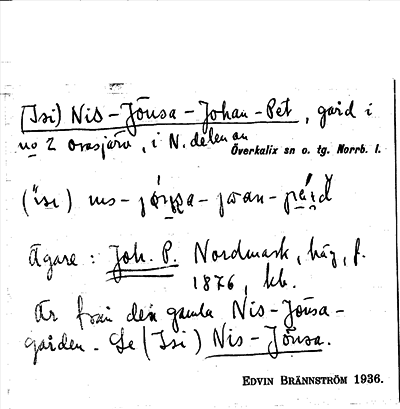 (Isi) Nis-Jōnsa-Johan-Pet, gård i
no 2 Orasjärv, i N. delen av
Överkalix sn o. tg. Norrb. l.
Ägare: Joh. P. Nordmark, häg, f.
1876, hb.
Är från den gamla Nis-Jōnsa-
gården. Se (Isi) Nis-Jōnsa.
EDVIN BRÄNNSTRÖM 1936.